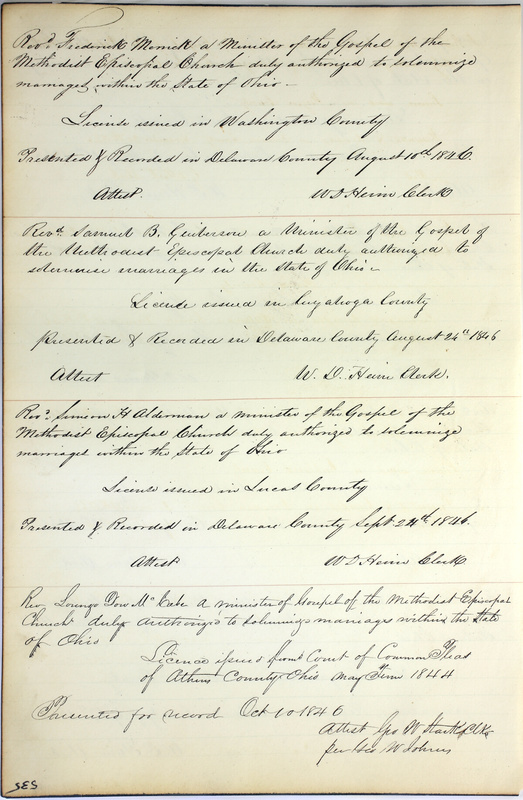 Revd. Frederick Merrick a Minister of the Gospel of the
Methodist Episcopal Church duly authorized to solemnize
marriages within the State of Ohio —
License issued in Washington County
Presented & Recorded in Delaware County August 10th 1846.
Attest. W D Heim Clerk
Revd. Samuel B. Guiberson a Minister of the Gospel of
the Methodist Episcopal Church duly authorized to
solemnise marriages in the State of Ohio —
License issued in Cuyahoga County
Presented & Recorded in Delaware County August 24th 1846
Attest W. D. Heim Clerk.
Revd. Simson H Alderman a minister of the Gospel of the
Methodist Episcopal Church duly authorized to solemnize
marriages within the State of Ohio
License issued in Lucas County
Presented & Recorded in Delaware County Sept 24th 1846.
Attest W D Heim Clerk
Rev Lorenzo Dow McCabe a minister of Gospel of the Methodist Episcopal
Church duly Authorized to solemnize marriages within the State
of Ohio
Licence issued from Court of Common Pleas
of Athens County Ohio May Term 1844
Presented for record Oct 10 1846
Attest Geo W Clk
per Geo W
535